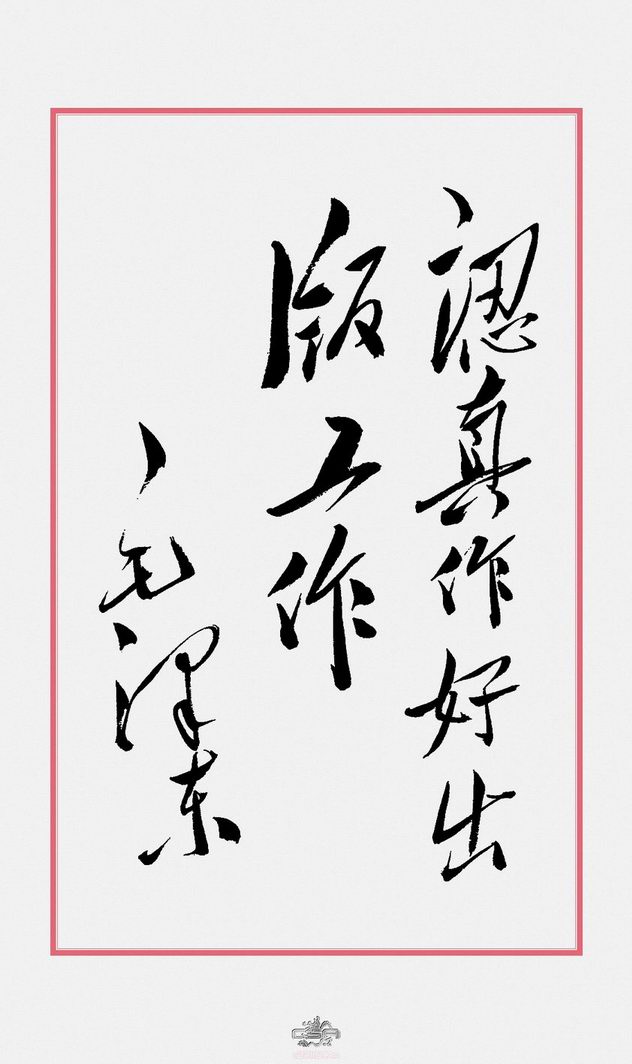 認真作好出
版工作
毛澤东